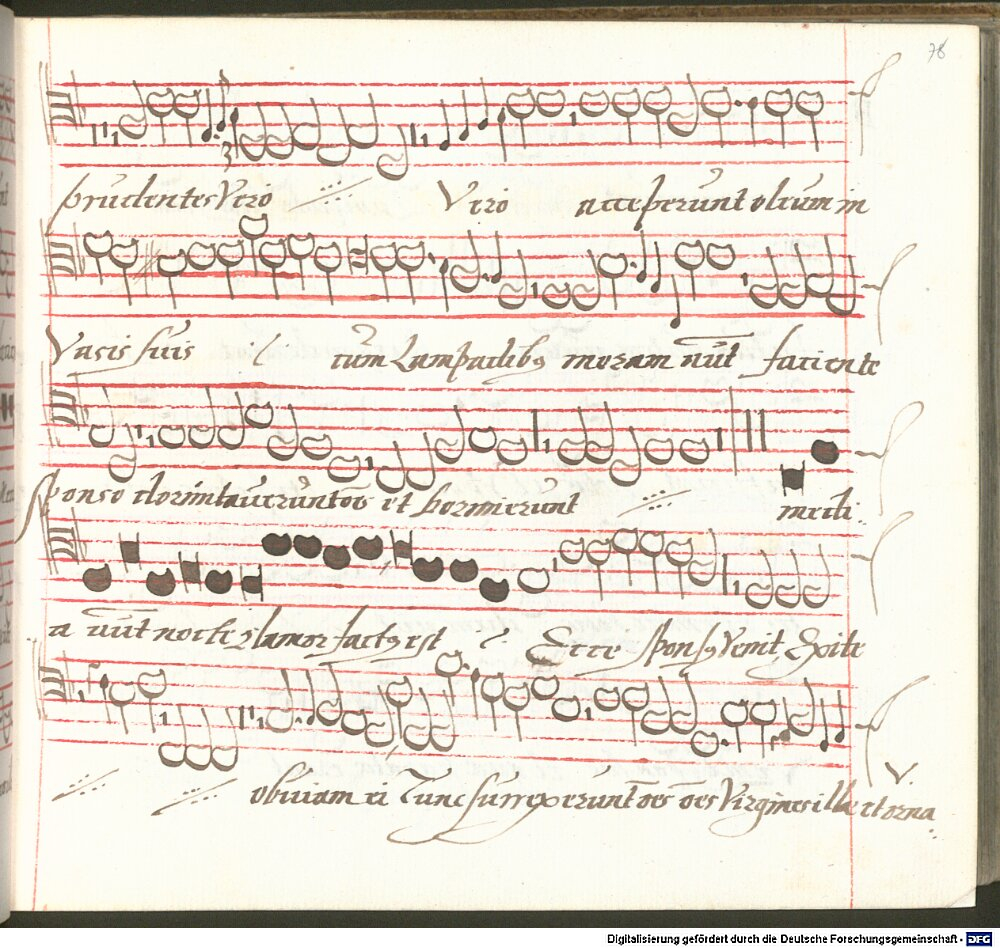 78
prudentes Vero Vero acceperunt oleum in
Vasis suis cum Lampadibꝯ moram aūt faciente
sponso dormitaverunt oēs et dormierunt medi:
a aūt nocte clamor factꝯ est Ecce sponsꝯ Venit Exite
obviam ei Tunc surrexerunt oēs oēs Virgines illae et orna
V.
Digitalisierung gefördert durch die Deutsche Forschungsgemeinschaft - DFG